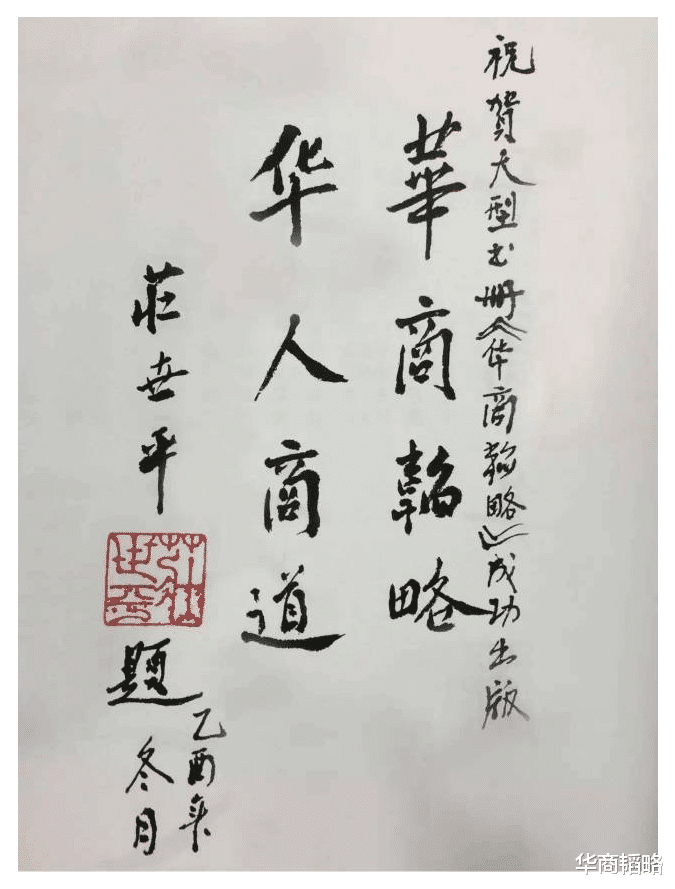 祝贺大型书册《华商韬略》成功出版
華商韜略
华人商道
莊世平
莊世平
题
乙酉年
冬月
华商韬略